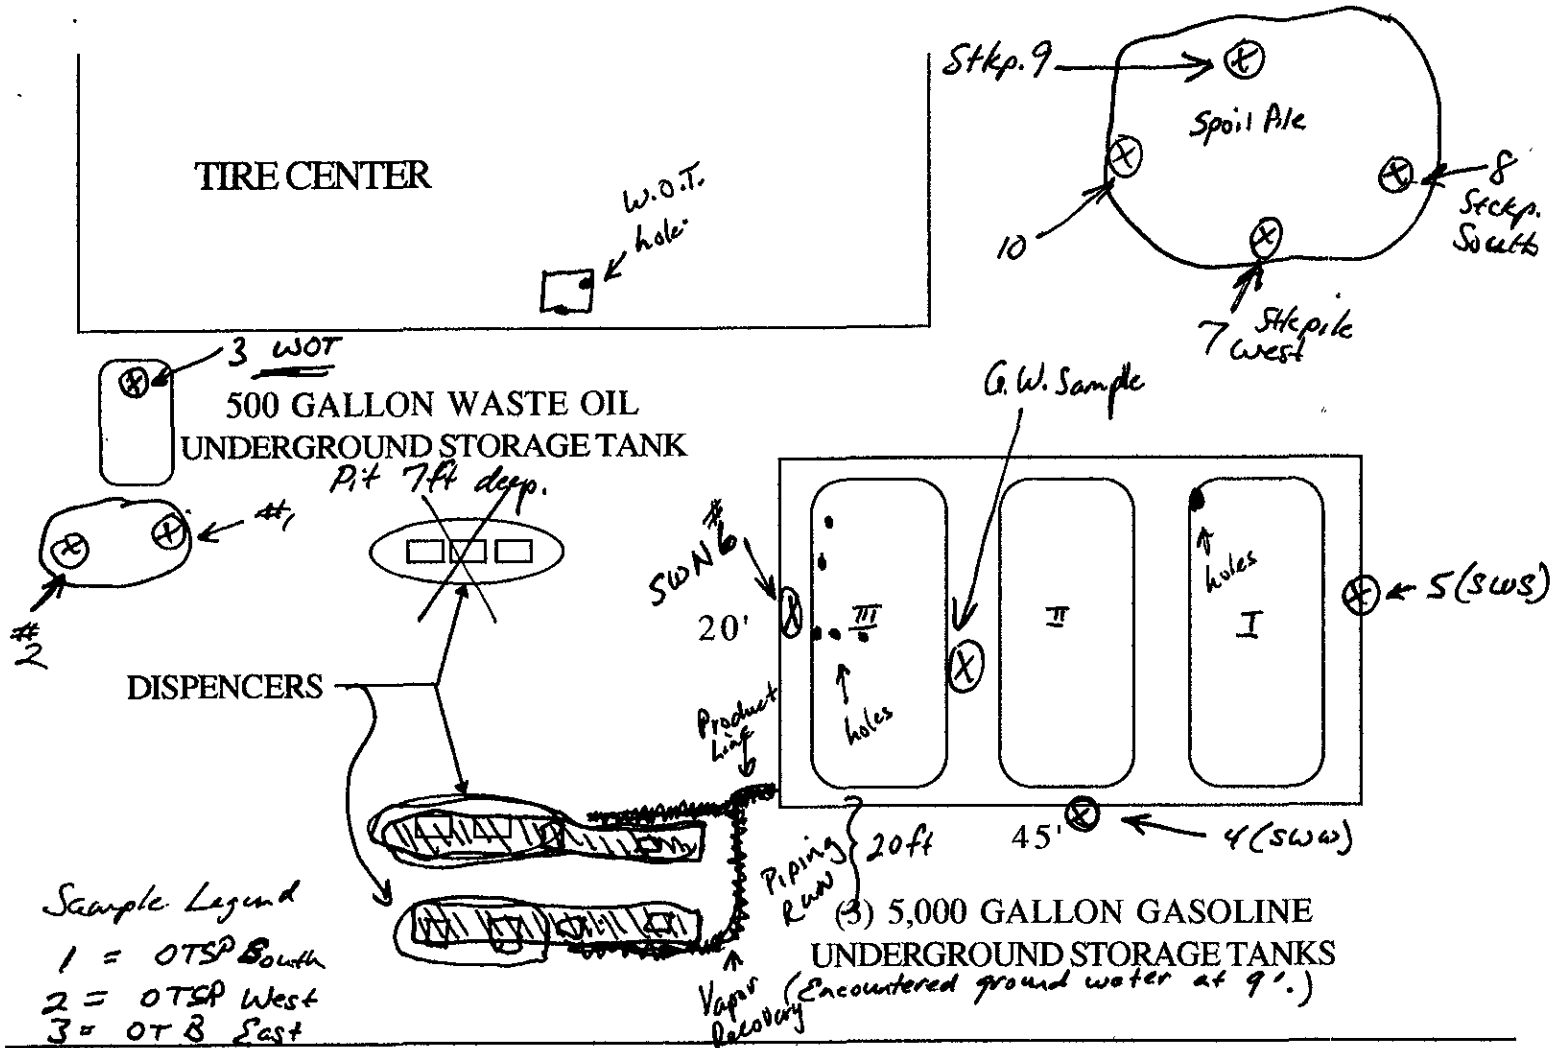 Stkp. 9
Spoil Pile
TIRE CENTER
W.O.T.
hole
10
8
Stckp.
South
7 Stkpile
West
3 WOT
G.W. Sample
500 GALLON WASTE OIL
UNDERGROUND STORAGE TANK
Pit 7ft deep.
#1
#2
SWN #6
20'
III
II
I
holes
holes
5 (SWS)
DISPENCERS
Product
Line
Piping
Run
20ft
45'
4 (SWW)
(3) 5,000 GALLON GASOLINE
UNDERGROUND STORAGE TANKS
(Encountered ground water at 9'.)
Vapor
Recovery
Sample Legend
1 = OTSP South
2 = OTSP West
3 = OTB East